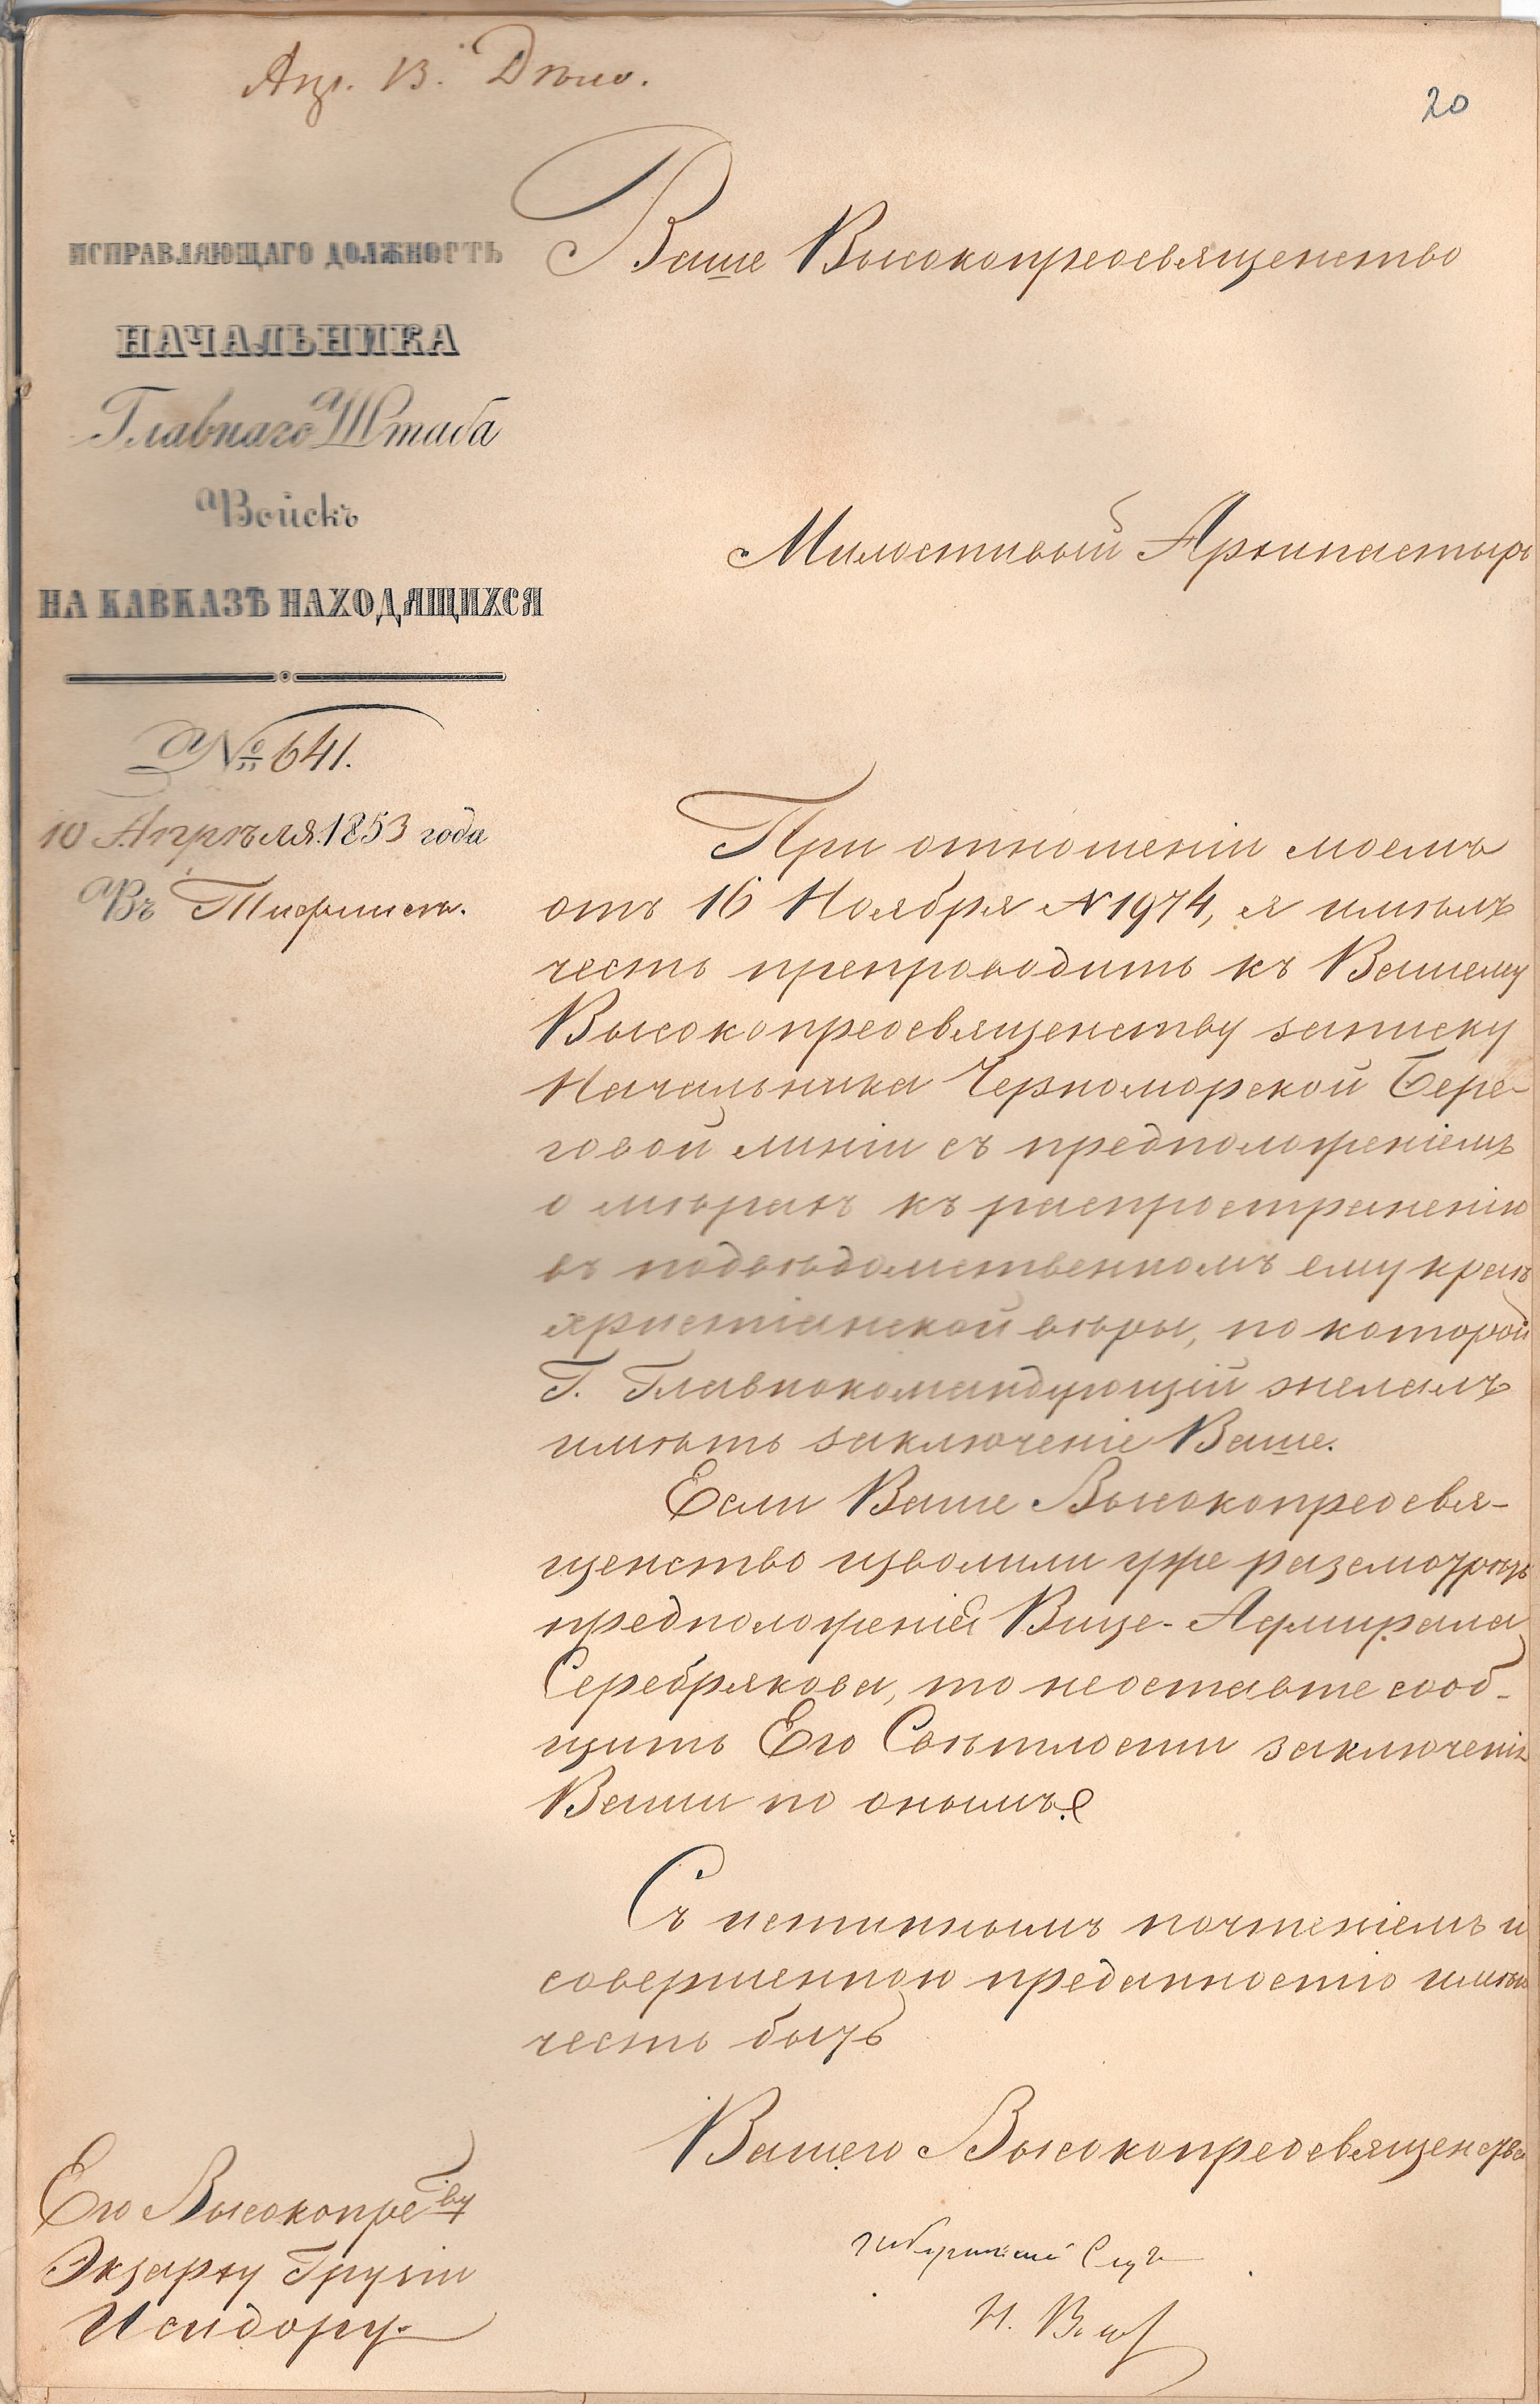 В. Дѣло.
20
ИСПРАВЛЯЮЩАГО ДОЛЖНОСТЬ
НАЧАЛЬНИКА
Главнаго Штаба
Войскъ
НА КАВКАЗѢ НАХОДЯЩИХСЯ
№ 641.
10 Апрѣля 1853 года
Въ Тифлисѣ.
Ваше Высокопреосвященство
Милостивый Архипастырь
При отношеніи моемъ
отъ 16 Ноября № 1974, я имѣлъ
честь препроводить къ Вашему
Высокопреосвященству записку
Начальника Черноморской Бере-
говой линіи съ предположеніемъ
о мѣрахъ къ распространенію
въ подвѣдомственномъ ему краѣ
христіанской вѣры, по которой
Г. Главнокомандующій желалъ
имѣть заключеніе Ваше.
Если Ваше Высокопреосвя-
щенство изволили уже разсмотрѣть
предположенія Вице-Адмирала
Серебрякова, то неоставьте сооб-
щить Его Свѣтлости заключенія
Ваши по онымъ.
Съ истиннымъ почтеніемъ и
совершенною преданностію имѣю
честь быть
Вашего Высокопреосвященства
Н.
Его Высокопре-ву
Экзарху Грузіи
Исидору.